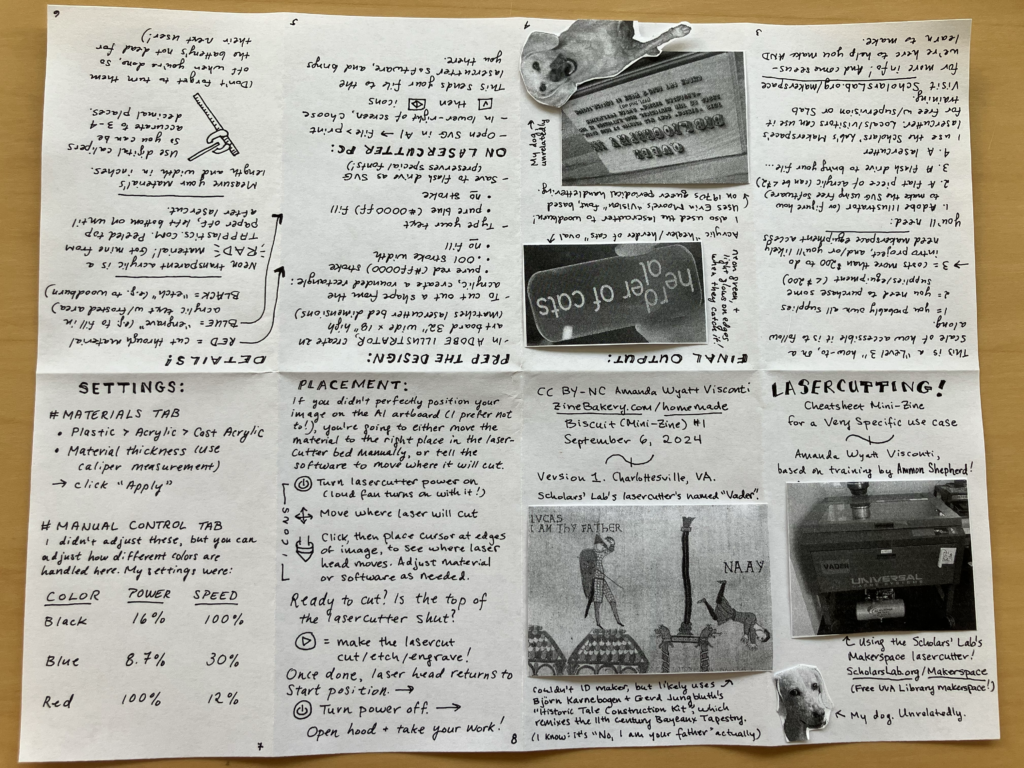 LASERCUTTING!
Cheatsheet Mini-Zine
for a Very Specific use case
Amanda Wyatt Visconti,
based on training by Ammon Shepherd!
VADER
UNIVERSAL
Using the Scholars' Lab's
Makerspace lasercutter!
ScholarsLab.org/Makerspace
(Free UVA Library makerspace!)
My dog. Unrelatedly.
This is a "level 3" how-to, on a
scale of how accessible it is
along.
1 = you probably own supplies
2 = you need to purchase some
supplies/equipment (< $200)
→ 3 = costs more than $200 to do
intro project, and/or you'll likely
need makerspace equipment access
you'll need:
1. Adobe Illustrator (or figure how
to make the SVG using free software)
2. Flat piece of acrylic
3. Flash drive to bring your file...
4. A lasercutter
I use the Scholars' Lab's Makerspace's
lasercutter. Locals/visitors can use it
for free w/ supervision or Slab
training.
Visit ScholarsLab.org/makerspace
for more info! And come
we're here to help you make AND
learn to make.
3
FINAL OUTPUT:
Acrylic "heeler/herder of cats" oval
he rd
ler er of cats
neon green, +
light glows on edges
when they catch it!
I also used the lasercutter to woodburn!
Uses Erin Moore's "Vision" font, based
on 1970s queer periodical handlettering.
My dog
unrelatedly
4
PREP THE DESIGN:
- In ADOBE ILLUSTRATOR, create an
art board 32" wide x 18" high
(matches lasercutter bed dimensions)
- To cut out a shape from the
acrylic, create a rounded rectangle:
• pure red (#FF0000) stroke
• .001 stroke width
• no fill
- Type your text
• pure blue (#0000FF) fill
• no stroke
- Save to flash drive as SVG
(preserves special fonts!)
ON LASERCUTTER PC:
- Open SVG in AI → File > print
- In lower-right of screen, choose
then icons
This sends your file to the
lasercutter software, and brings
you there.
5
DETAILS!
RED = cut through material
BLUE = "engrave" (eg to fill in
acrylic w/ frosted area)
BLACK = "etch" (e.g. to woodburn)
Neon transparent acrylic is a
RAD material! Got mine from
TAPPlastics.com. Peeled top
paper off, left bottom on until
after lasercut.
Measure your material's
length and width in inches.
Use digital calipers
so you can be
accurate to 3-4
decimal places.
(Don't forget to turn them
off when you're done, so
the battery's not dead for
their next user!)
6
SETTINGS:
# MATERIALS TAB
• Plastic > Acrylic > Cast Acrylic
• Material thickness (use
caliper measurement)
→ click "Apply"
# MANUAL CONTROL TAB
I didn't adjust these, but you can
adjust how different colors are
handled here. My settings were:
COLOR POWER SPEED
Black 16% 100%
Blue 8.7% 30%
Red 100% 12%
7
PLACEMENT:
If you didn't perfectly position your
image on the AI artboard (I prefer not
to!), you're going to either move the
material to the right place in the laser-
cutter bed manually, or tell the
software to move where it will cut.
ICONS
Turn lasercutter power on
(loud fan turns on with it!)
Move where laser will cut
Click, then place cursor at edges
of image, to see where laser
head moves. Adjust material
or software as needed.
Ready to cut? Is the top of
the lasercutter shut?
= make the lasercut
cut/etch/engrave!
Once done, laser head returns to
start position. →
Turn power off. →
Open hood + take your work!
8
CC BY-NC Amanda Wyatt Visconti
ZineBakery.com/homemade
Biscuit (Mini-Zine) #1
September 6, 2024
Version 1. Charlottesville, VA.
Scholars' Lab's lasercutter's named "Vader".
LVCAS
I AM THY FATHER
NAAY
Couldn't ID maker, but likely uses
Björn Karnebogen + Gerd Jungbluth's
"Historic Tale Construction Kit", which
remixes the 11th century Bayeaux Tapestry.
(I know: it's "No, I am your father" actually)